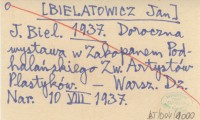 [BIELATOWICZ Jan]
J. Biel. 1937. Doroczna
wystawa w Zakopanem Pod-
halańskiego Zw. Artystów
Plastyków. — Warsz. Dz.
Nar. 10 VIII 1937.